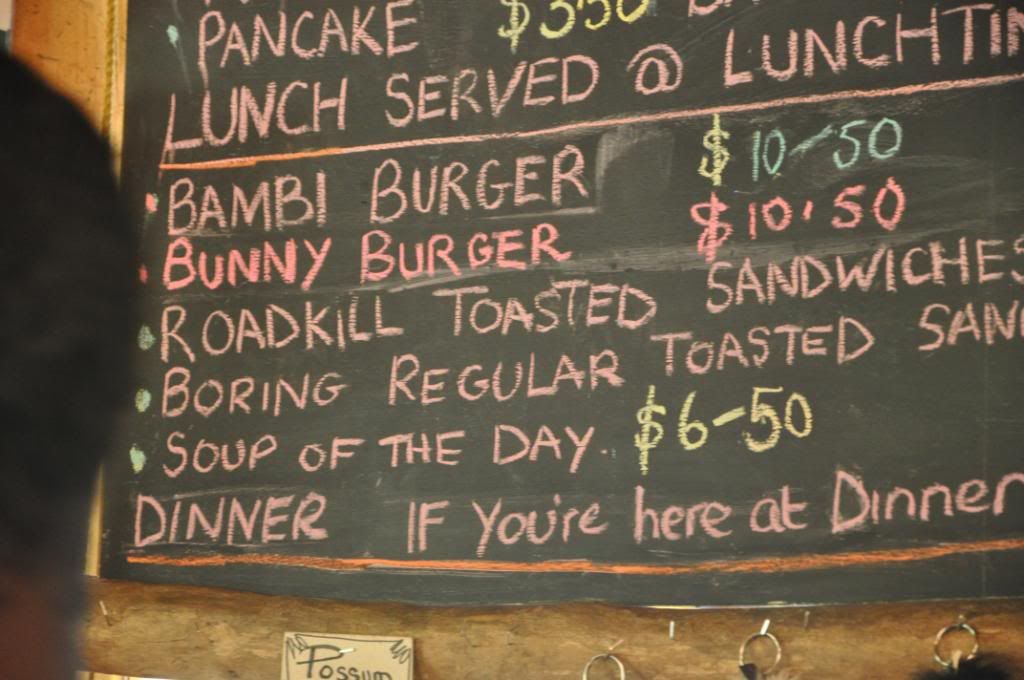 PANCAKE $3.50
LUNCH SERVED @ LUNCHTIM
BAMBI BURGER $10-50
BUNNY BURGER $10.50
ROADKILL TOASTED SANDWICHES
BORING REGULAR TOASTED SAN
SOUP OF THE DAY. $6-50
DINNER IF You're here at Dinner
Possum